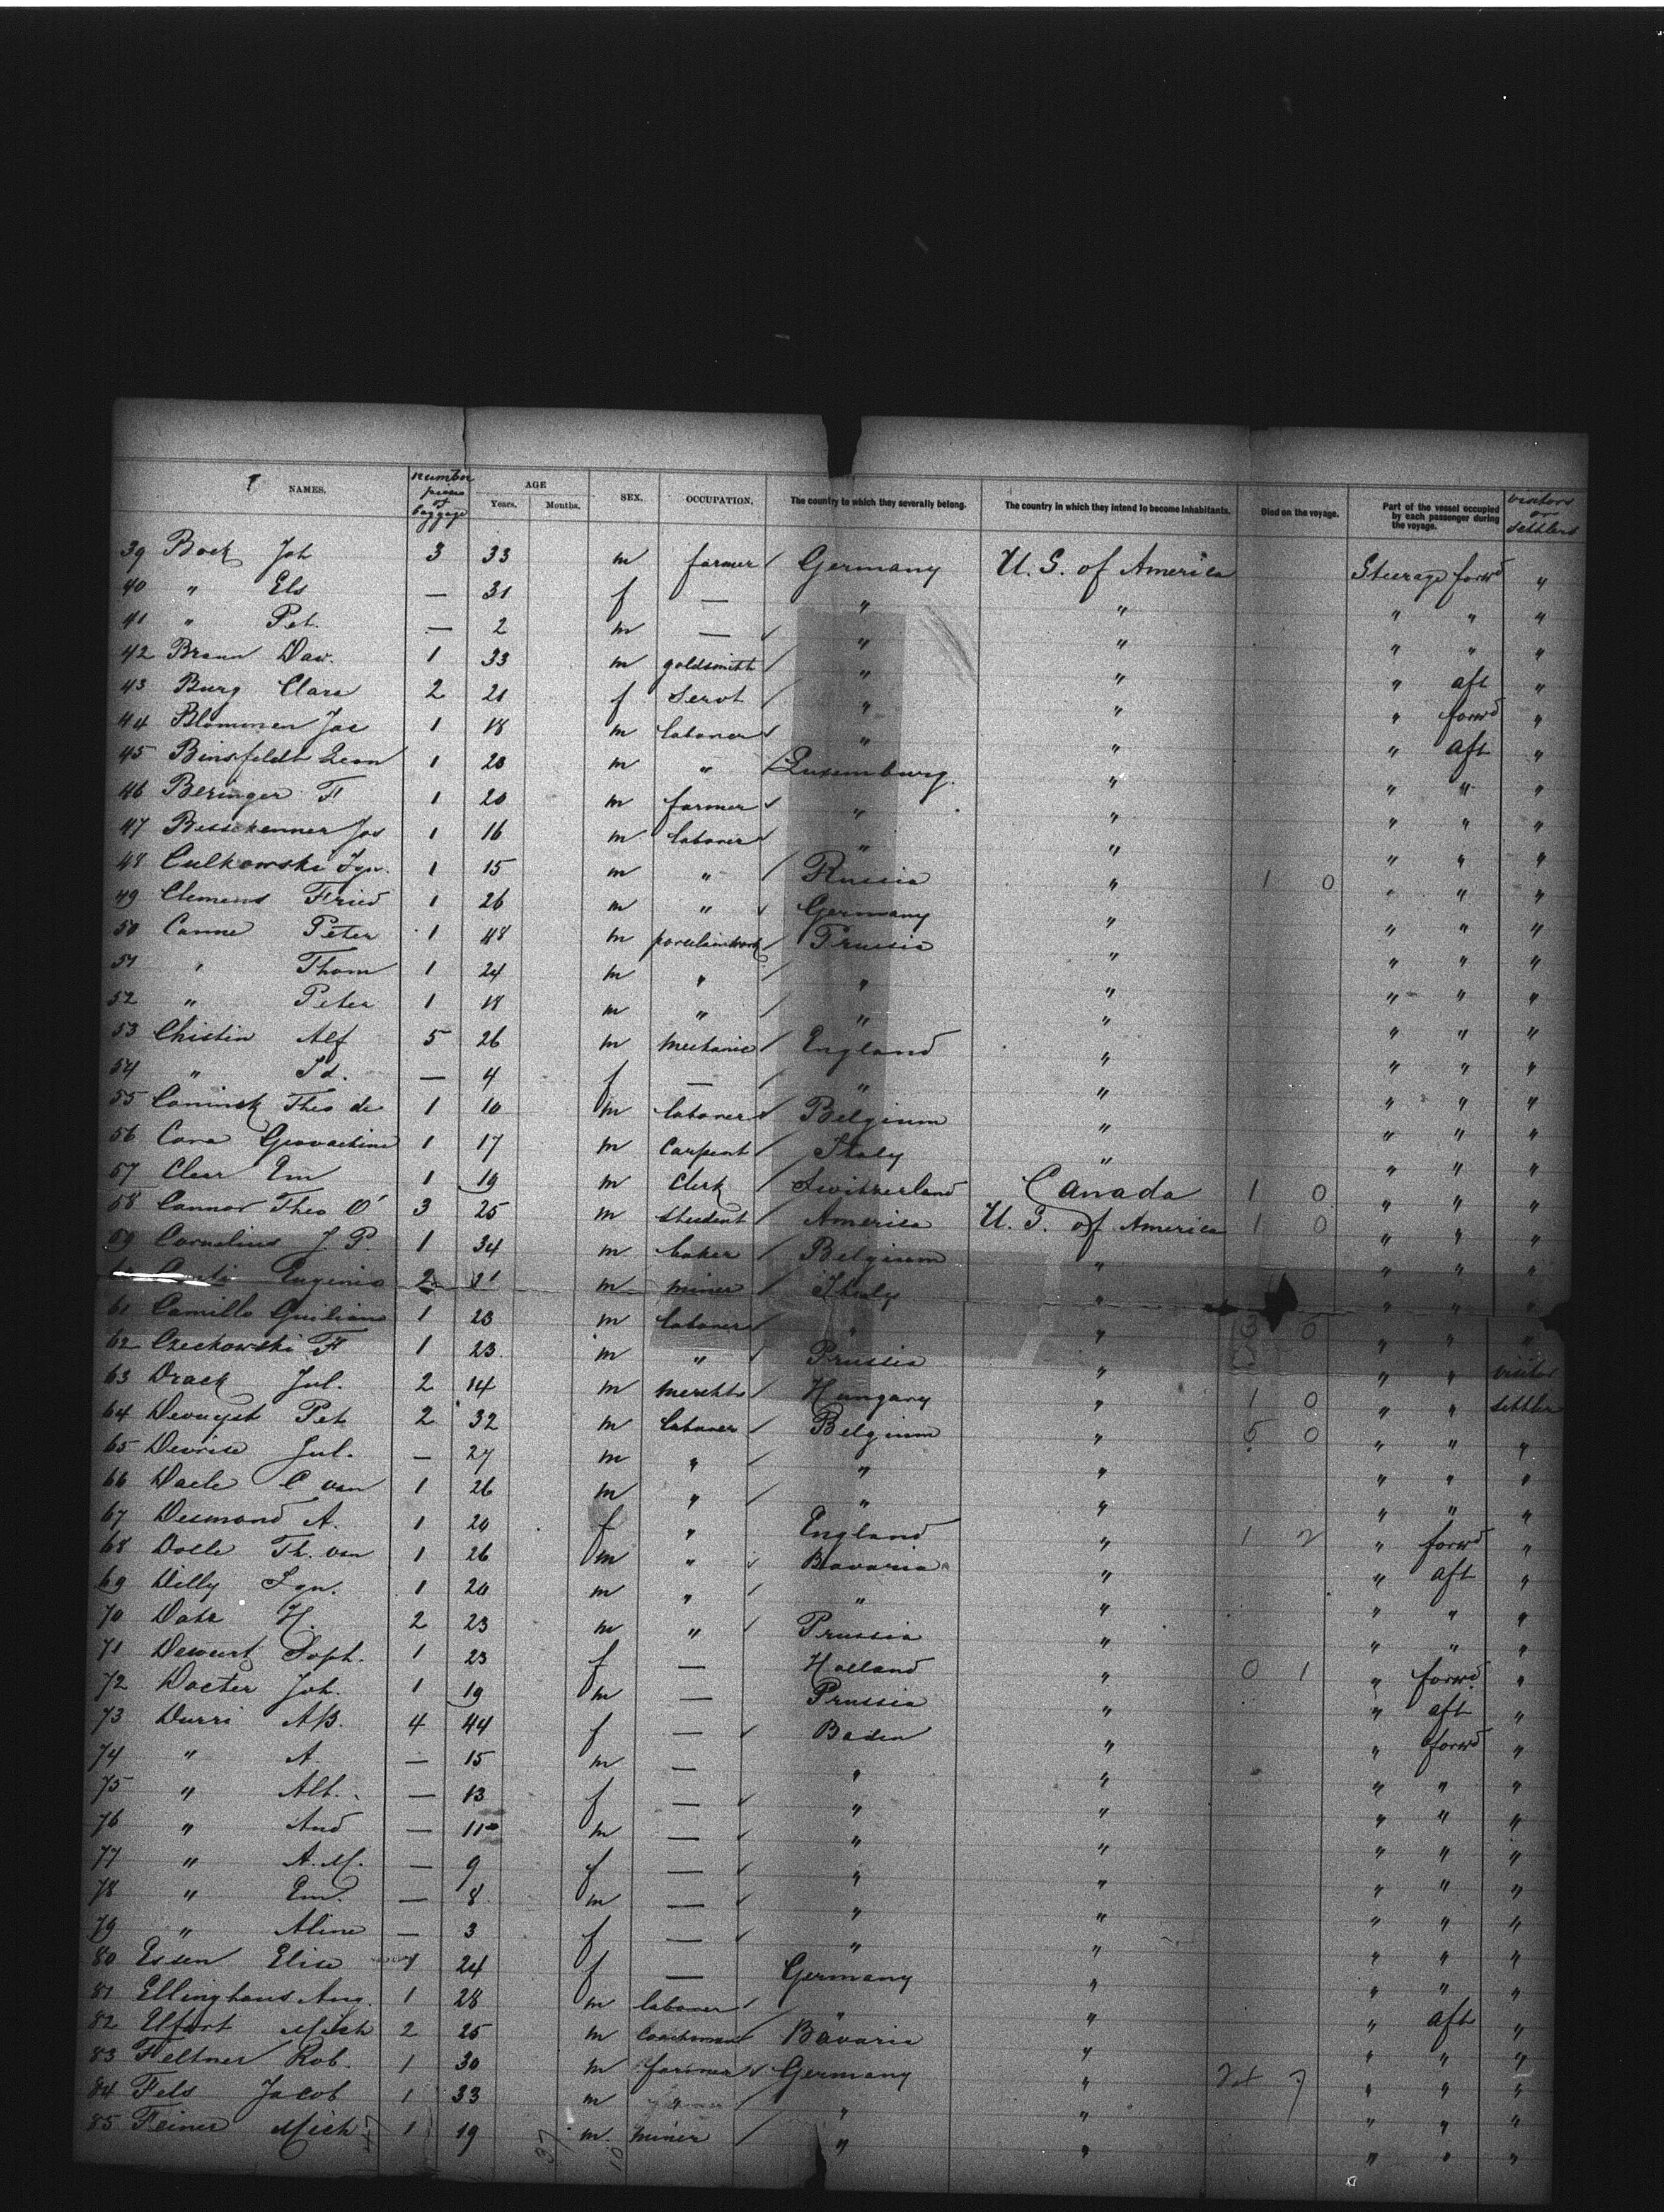 NAMES. number pieces of baggage AGE Years. Months. SEX. OCCUPATION. The country to which they severally belong. The country in which they intend to become inhabitants. Died on the voyage. Part of the vessel occupied by each passenger during the voyage. visitors or settlers
39 Bock Joh 3 33 m farmer Germany U.S. of America Steerage forwd "
40 " Els — 31 f — " " " " "
41 " Pet. — 2 m — " " " " "
42 Braun Dav. 1 33 m goldsmith " " " aft "
43 Burg Clara 2 21 f Servt " " " forwd "
44 Blommen Jac 1 18 m laborer " " " aft "
45 Binsfeldt Leon 1 23 m " Luxemburg " " " "
46 Beringer F 1 20 m farmer " " " " "
47 Jos 1 16 m laborer " " " " "
48 Culkowski Ign. 1 15 m " Russia " 1 0 " " "
49 Clemens Fried 1 26 m " Germany " " " "
50 Canne Peter 1 48 m porcelainwork Prussia " " " "
51 " Thom 1 24 m " " " " " "
52 " Peter 1 18 m " " " " " "
53 Christin Alf 5 26 m mechanic England " " " "
54 " Id. — 4 f — " " " " "
55 Coninck Theo de 1 10 m laborer Belgium " " " "
56 Cava Giovachino 1 17 m Carpent Italy " " " "
57 Clear Em 1 19 m Clerk Switzerland Canada 1 0 " " "
58 Connor Theo O' 3 25 m student America U.S. of America 1 0 " " "
59 Cornelius J. P. 1 34 m baker Belgium " " " "
Eugenio 2 31 m miner Italy " " " "
61 Camillo Guiliano 1 23 m laborer " " 3 0 " " "
62 Czechowski F 1 23 m " Prussia " " " visitor
63 Drack Jul. 2 14 m mercht Hungary " 1 0 " " settler
64 Devuyst Pet 2 32 m laborer Belgium " 5 0 " " "
65 Devrise Jul. — 27 m " " " " " "
66 Daele C van 1 26 m " " " " " "
67 Desmond A. 1 20 f " England " 1 2 " forwd "
68 Dolle Th. van 1 26 m " Bavaria " " aft "
69 Dilly Ign. 1 20 m " " " " " "
70 Date H. 2 23 m " Prussia " " " "
71 Dewert Soph. 1 23 f — Holland " 0 1 " forwd "
72 Docter Joh. 1 19 m — Prussia " " aft "
73 Durri AB. 4 44 f — Baden " " forwd "
74 " A. — 15 m — " " " " "
75 " Alb. — 13 f — " " " " "
76 " And — 11 m — " " " " "
77 " A. M. — 9 f — " " " " "
78 " Em. — 8 m — " " " " "
79 " Aline — 3 f — " " " " "
80 Essen Elise 1 24 f — Germany " " " "
81 Ellinghaus Aug. 1 28 m laborer " " " aft "
82 Elfort Mich 2 25 m Coachman Bavaria " " " "
83 Feltner Rob. 1 30 m farmer Germany " " " "
84 Fels Jacob 1 33 m " " " " " "
85 Feiner Mich 1 19 m. miner " " " " "
37 10